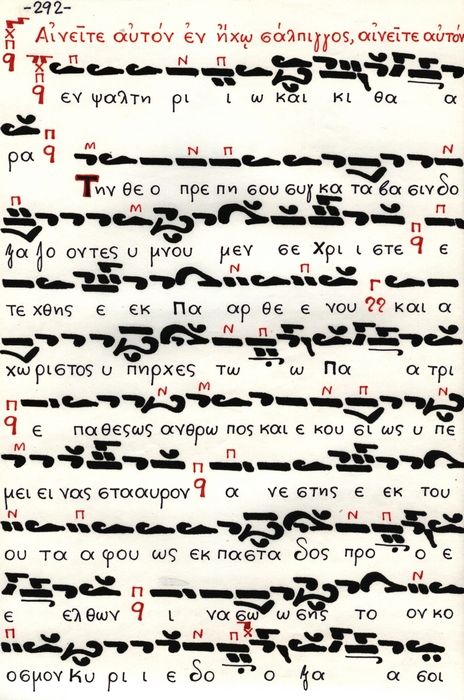 -292-
Αἰνεῖτε αὐτόν ἐν ἤχῳ σάλπιγγος, αἰνεῖτε αὐτόν
εν ψαλτη ρι ι ω και κι θα α
ρα
Την θε ο πρε πη σου συγ κα τα βα σιν δο
ξα ζο οντες υ μνου μεν σε Χρι ι στε ε
τε χθης ε εκ Πα αρ θε ε νου και α
χω ριστος υ πηρχες τω ω Πα α τρι
ε πα θες ως ανθρω πος και ε κου σι ως υ πε
μει ει νας σταυρον α νε στης ε εκ του
ου τα α φου ως εκ παστα δος προ ο ε
ε ελθων ι να σω ω σης το ον κο
οσμον Κυ ρι ι ε δο ο ξα α σοι